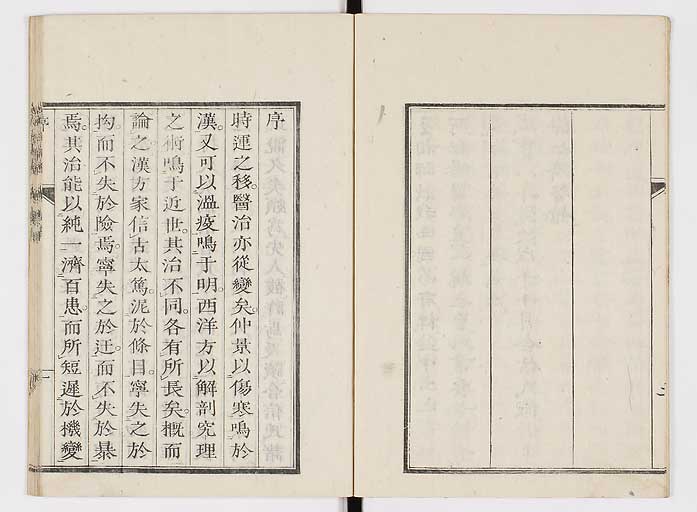 序
時運之移。醫治亦從變矣。仲景以傷寒鳴於
漢。又可以溫疫鳴于明。西洋方以解剖究理
之術。鳴于近世。其治不同。各有所長矣。概而
論之。漢方家信古太篤。泥於條目。寧失之於
拘。而不失於險焉。寧失之於迂。而不失於暴
焉。其治能以純一濟百患。而所短遲於機變